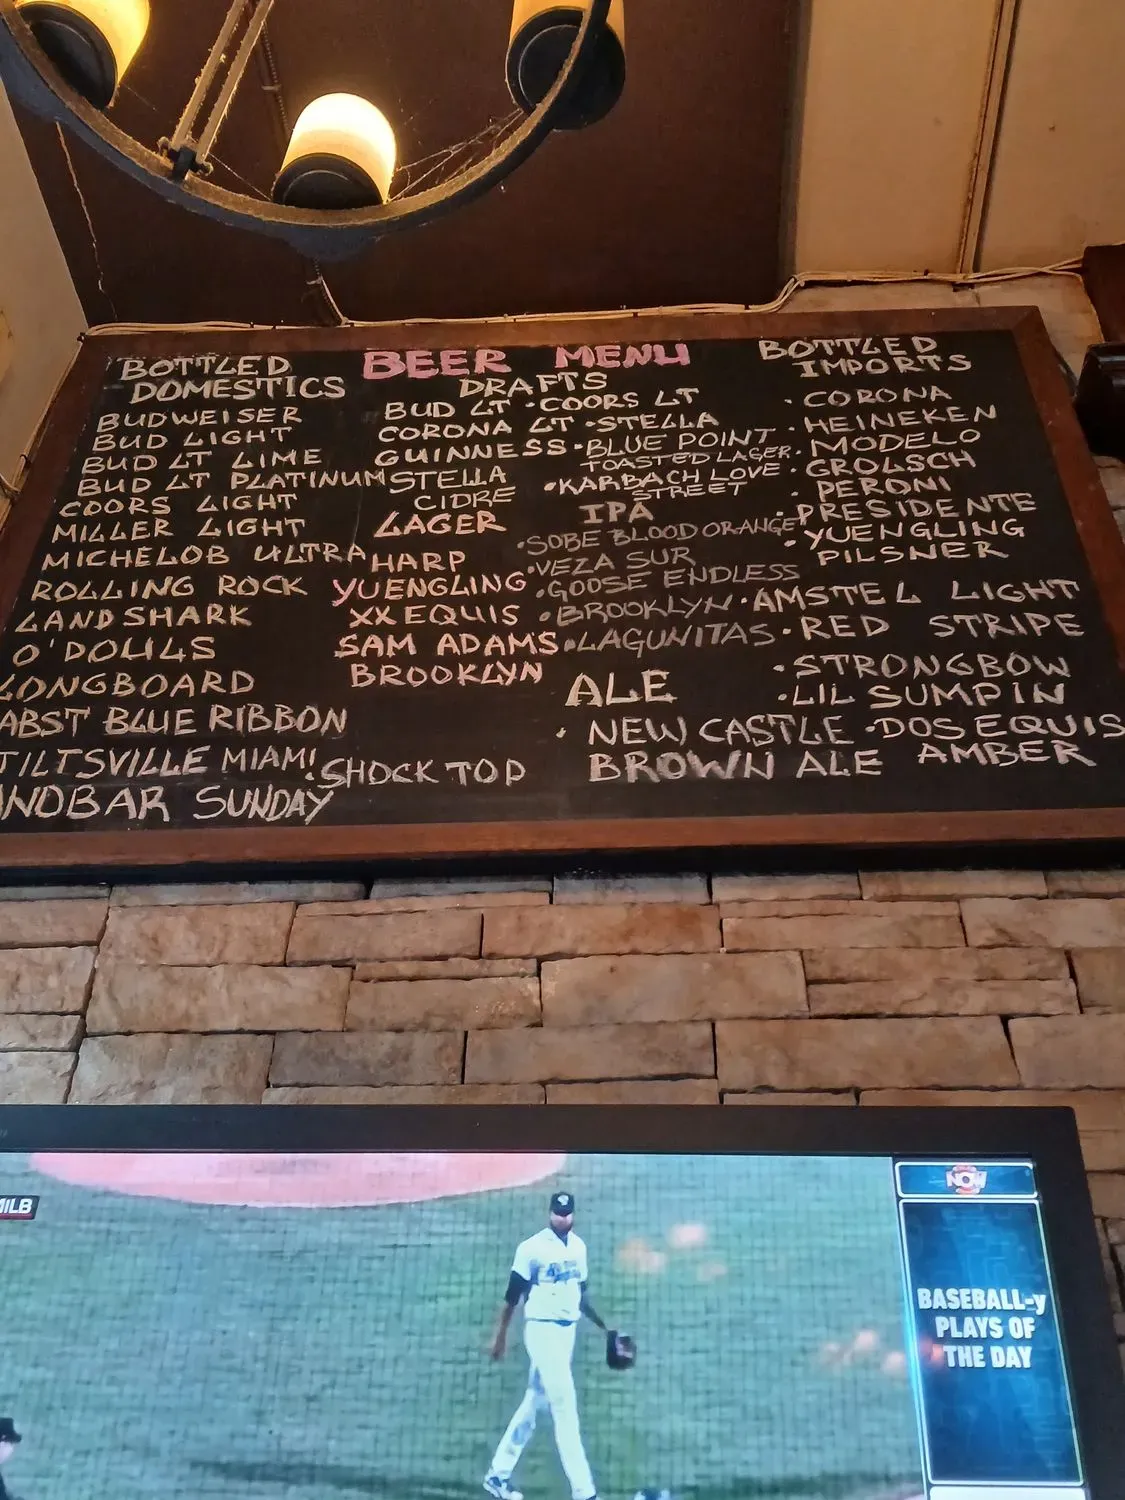 BEER MENU
BOTTLED
DOMESTICS
BUDWEISER
BUD LIGHT
BUD LT LIME
BUD LT PLATINUM
COORS LIGHT
MILLER LIGHT
MICHELOB ULTRA
ROLLING ROCK
LANDSHARK
O'DOULS
LONGBOARD
ABST BLUE RIBBON
TILTSVILLE MIAMI
NOBAR SUNDAY
• SHOCK TOP
DRAFTS
BUD LT • COORS LT
CORONA LT • STELLA
GUINNESS • BLUE POINT
TOASTED LAGER
STELLA
CIDRE
• KARBACH LOVE
STREET
LAGER
HARP
YUENGLING
XX EQUIS
SAM ADAMS
BROOKLYN
IPA
• SOBE BLOOD ORANGE
• VEZA SUR
• GOOSE ENDLESS
• BROOKLYN
• LAGUNITAS
ALE
• NEW CASTLE
BROWN ALE
BOTTLED
IMPORTS
• CORONA
• HEINEKEN
• MODELO
• GROLSCH
• PERONI
• PRESIDENTE
• YUENGLING
PILSNER
• AMSTEL LIGHT
• RED STRIPE
• STRONGBOW
• LIL SUMPIN
• DOS EQUIS
AMBER
MLB
NOW
BASEBALL-y
PLAYS OF
THE DAY